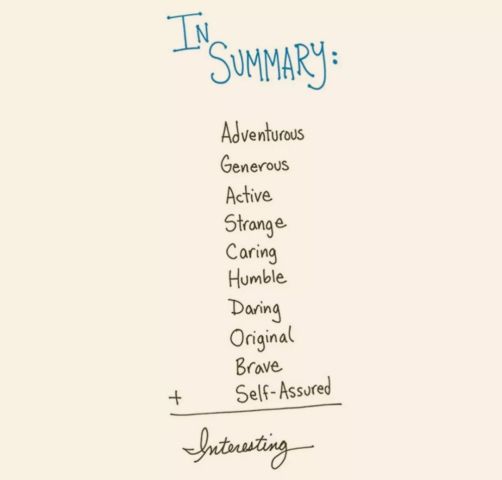 In
Summary:
Adventurous
Generous
Active
Strange
Caring
Humble
Daring
Original
Brave
+ Self-Assured
Interesting